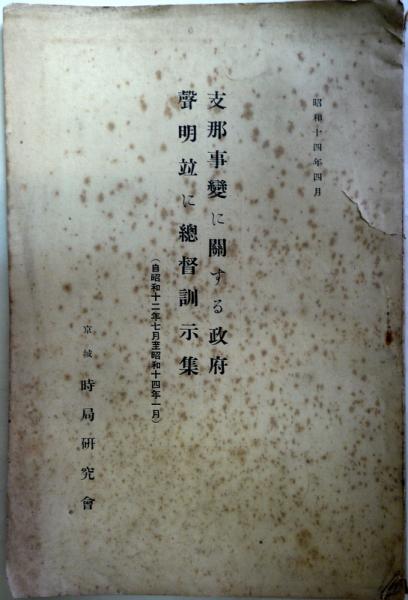 昭和十四年四月
支那事變に關する政府
聲明竝に總督訓示集
（自昭和十二年七月至昭和十四年一月）
京城 時局研究會